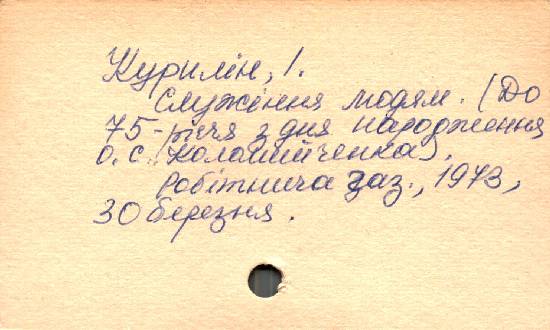 Курилін, І.
Служіння людям. (До
75-річчя з дня народження
О.С. Коломійченка).
Робітнича газ., 1973,
30 березня.